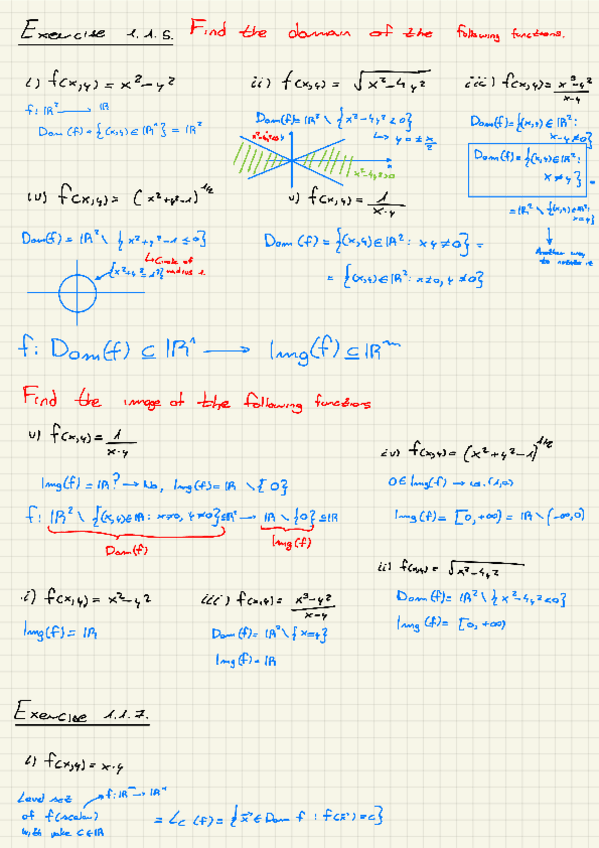 Exercise 1.1.5. Find the domain of the following functions.
i) f(x,y) = x²-y²
f: ℝ² → ℝ
Dom (f) = {(x,y) ∈ ℝⁿ} = ℝ²
ii) f(x,y) = √(x²-4y²)
Dom(f) = ℝ² \ {x²-4y² < 0}
↳ y = ± x/2
x²-4y²<0
x²-4y²>0
iii) f(x,y) = (x³-y²)/(x-y)
Dom(f) = {(x,y) ∈ ℝ²:
x-y ≠ 0}
Dom(f) = {(x,y) ∈ ℝ²:
x ≠ y} =
= ℝ² \ {(x,y) ∈ ℝ²:
x=y}
Another way
to notate it
iv) f(x,y) = (x²+y²-1)^1/2
Dom(f) = ℝ² \ {x²+y²-1 ≤ 0}
↳ Circle of
radius 1.
{x²+y²=1²}
v) f(x,y) = 1/(x·y)
Dom (f) = {(x,y) ∈ ℝ²: xy ≠ 0} =
= {(x,y) ∈ ℝ²: x≠0, y≠0}
f: Dom(f) ⊆ ℝⁿ → Img(f) ⊆ ℝᵐ
Find the image of the following functions
v) f(x,y) = 1/(x·y)
Img(f) = ℝ? → No, Img(f) = ℝ \ {0}
f: ℝ² \ {(x,y) ∈ ℝ: x≠0, y≠0} ⊆ ℝ² → ℝ \ {0} ⊆ ℝ
Dom(f)
Img(f)
iv) f(x,y) = (x²+y²-1)^1/2
0 ∈ Img(f) → (1,0)
Img(f) = [0,+∞) = ℝ \ (-∞,0)
ii) f(x,y) = √(x²-4y²)
Dom(f) = ℝ² \ {x²-4y²<0}
Img(f) = [0,+∞)
i) f(x,y) = x²-y²
Img(f) = ℝ
iii) f(x,y) = (x³-y²)/(x-y)
Dom(f) = ℝ² \ {x=y}
Img(f) = ℝ
Exercise 1.1.7.
i) f(x,y) = x·y
Level set
of f(scalar)
with value c ∈ ℝ
f: ℝᵐ → ℝⁿ
= L_c (f) = {x⃗ ∈ Dom f : f(x⃗) = c}